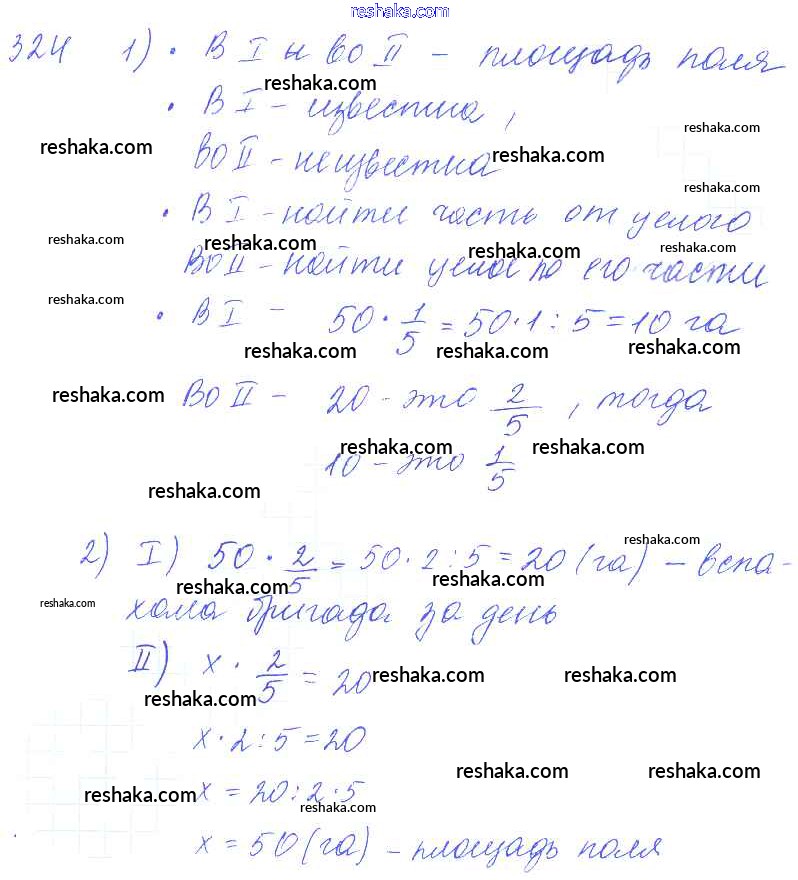 reshaka.com
324 1) • В I и во II – площадь поля
reshaka.com
• В I – известна,
reshaka.com
reshaka.com
во II – неизвестна
reshaka.com
reshaka.com
• В I – найти часть от целого
reshaka.com reshaka.com reshaka.com reshaka.com
Во II – найти целое по его части
reshaka.com
• В I – 50 · 1/5 = 50 · 1 : 5 = 10 га
reshaka.com reshaka.com reshaka.com
reshaka.com
Во II – 20 – это 2/5, тогда
reshaka.com reshaka.com
10 – это 1/5
reshaka.com
reshaka.com
2) I) 50 · 2/5 = 50 · 2 : 5 = 20 (га) – вспа-
reshaka.com reshaka.com
reshaka.com
хала бригада за день
II) x · 2/5 = 20
reshaka.com reshaka.com
reshaka.com
x · 2 : 5 = 20
reshaka.com reshaka.com
reshaka.com
x = 20 : 2 · 5
reshaka.com
x = 50 (га) – площадь поля